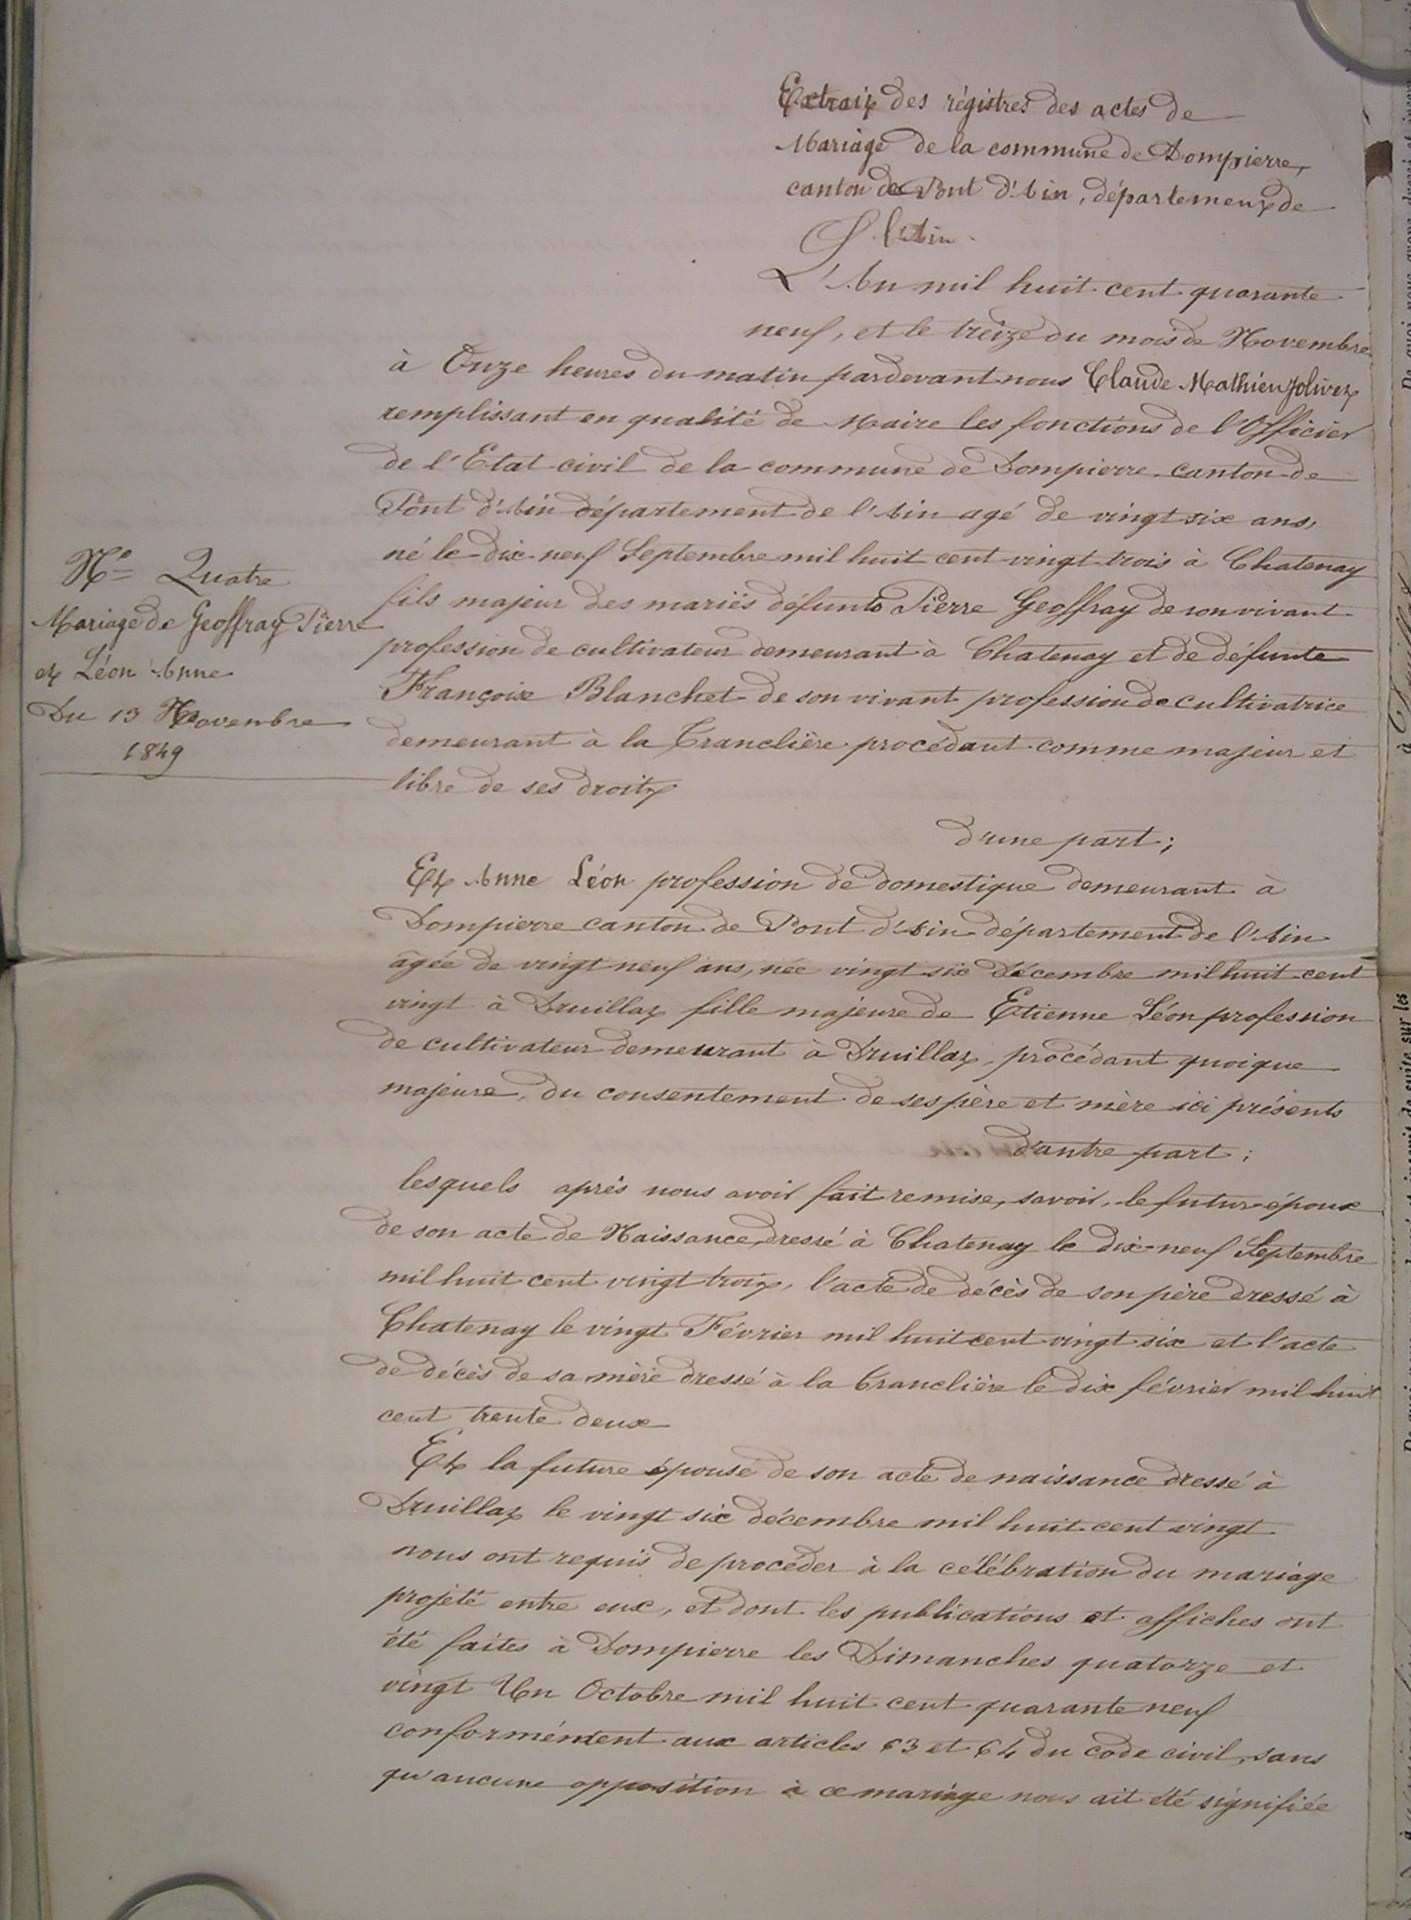 Extrait des régistres des actes de
Mariage de la commune de Dompierre,
canton de Pont d'Ain, département de
l'Ain.
L'An mil huit cent quarante
neuf, et le treize du mois de Novembre
à Onze heures du matin pardevant nous Claude Mathieu Jolivet
remplissant en qualité de Maire les fonctions de l'Officier
de l'Etat civil de la commune de Dompierre canton de
Pont d'Ain département de l'Ain agé de vingt six ans,
né le dix neuf Septembre mil huit cent vingt trois à Chatenay
fils majeur des mariés défunts Pierre Geoffray de son vivant
profession de cultivateur demeurant à Chatenay et de défunte
Françoise Blanchet de son vivant profession de cultivatrice
demeurant à la Tranclière procédant comme majeur et
libre de ses droits
d'une part;
Nº Quatre
Mariage de Geoffray Pierre
et Léon Anne
Du 13 Novembre
1849
Et Anne Léon profession de domestique demeurant à
Dompierre canton de Pont d'Ain département de l'Ain
âgée de vingt neuf ans, née vingt six Décembre mil huit cent
vingt à Druillat fille majeure de Etienne Léon profession
de cultivateur demeurant à Druillat, procédant quoique
majeure, du consentement de ses père et mère ici présents
d'autre part;
lesquels après nous avoir fait remise, savoir, le futur époux
de son acte de Naissance dressé à Chatenay le dix-neuf Septembre
mil huit cent vingt trois, l'acte de décès de son père dressé à
Chatenay le vingt Février mil huit cent vingt six et l'acte
de décès de sa mère dressé à la Tranclière le dix février mil huit
cent trente deux
Et la future épouse de son acte de naissance dressé à
Druillat le vingt six décembre mil huit cent vingt
nous ont requis de procéder à la célébration du mariage
projeté entre eux, et dont les publications et affiches ont
été faites à Dompierre les Dimanches quatorze et
vingt Un Octobre mil huit cent quarante neuf
conformément aux articles 63 et 64 du code civil, sans
qu'aucune opposition à ce mariage nous ait été signifiée